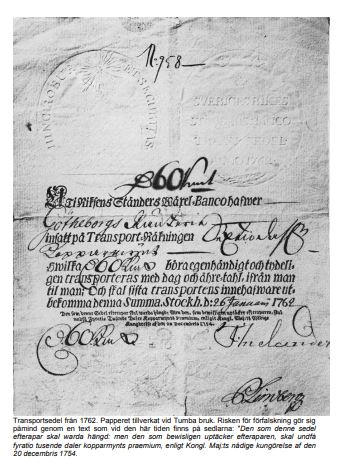 N:958
HINC ROBUR ET SECURITAS
SVERIGES RIKES
STÄNDERS BANCO
TRANSPORT SEDEL
60
I Riksens Ständers Wäxel-Banco hafwer
Götheborgs Ränteri
insatt på Transport-Räkningen
Kopparmynt
hwilka 60 böra egenhändigt och tydeli-
gen transporteras med dag och åhre-tahl, ifrån man
til man; Och skal sista transportens innehafware ut-
bekomma denna Summa. Stockh. d: 26 Januarij 1762
Den som denna Sedel efterapar skal warda hängd: Men den, som bewisligen uptäcker efteraparen, skal
undfå Fyratio Tusende Daler Kopparmynts præmium, enligt Kongl. Maj:ts Nådige
Kungiörelse af den 20 Decembris 1754.
60
Transportsedel från 1762. Papperet tillverkat vid Tumba bruk. Risken för förfalskning gör sig
påmind genom en text som vid den här tiden finns på sedlarna: "Den som denne sedel
efterapar skal warda hängd: men den som bewisligen uptäcker efteraparen, skal undfå
fyratio tusende daler kopparmynts praemium, enligt Kongl. Maj:ts nådige kungörelse af den
20 decembris 1754.